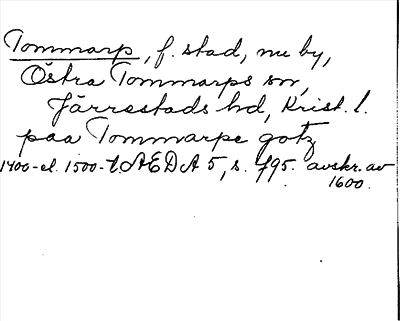 Tommarp, f. stad, nu by,
Östra Tommarps sn,
Järrestads hd, Krist. l.
paa Tommarpe gotz
1400-el. 1500-t. AEDA 5, s. 195. avskr. av
1600.